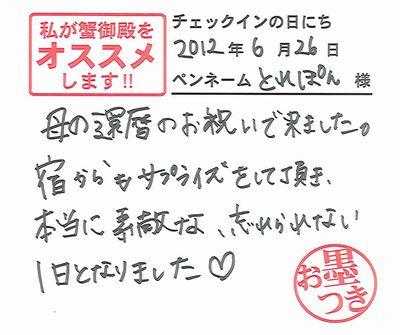 私が蟹御殿を
オススメ
します!!
チェックインの日にち
2012年6月26日
ペンネーム とれぽん 様
母の還暦のお祝いで来ました。
宿からもサプライズをして頂き、
本当に素敵な、忘れられない
1日となりました♡
お墨つき